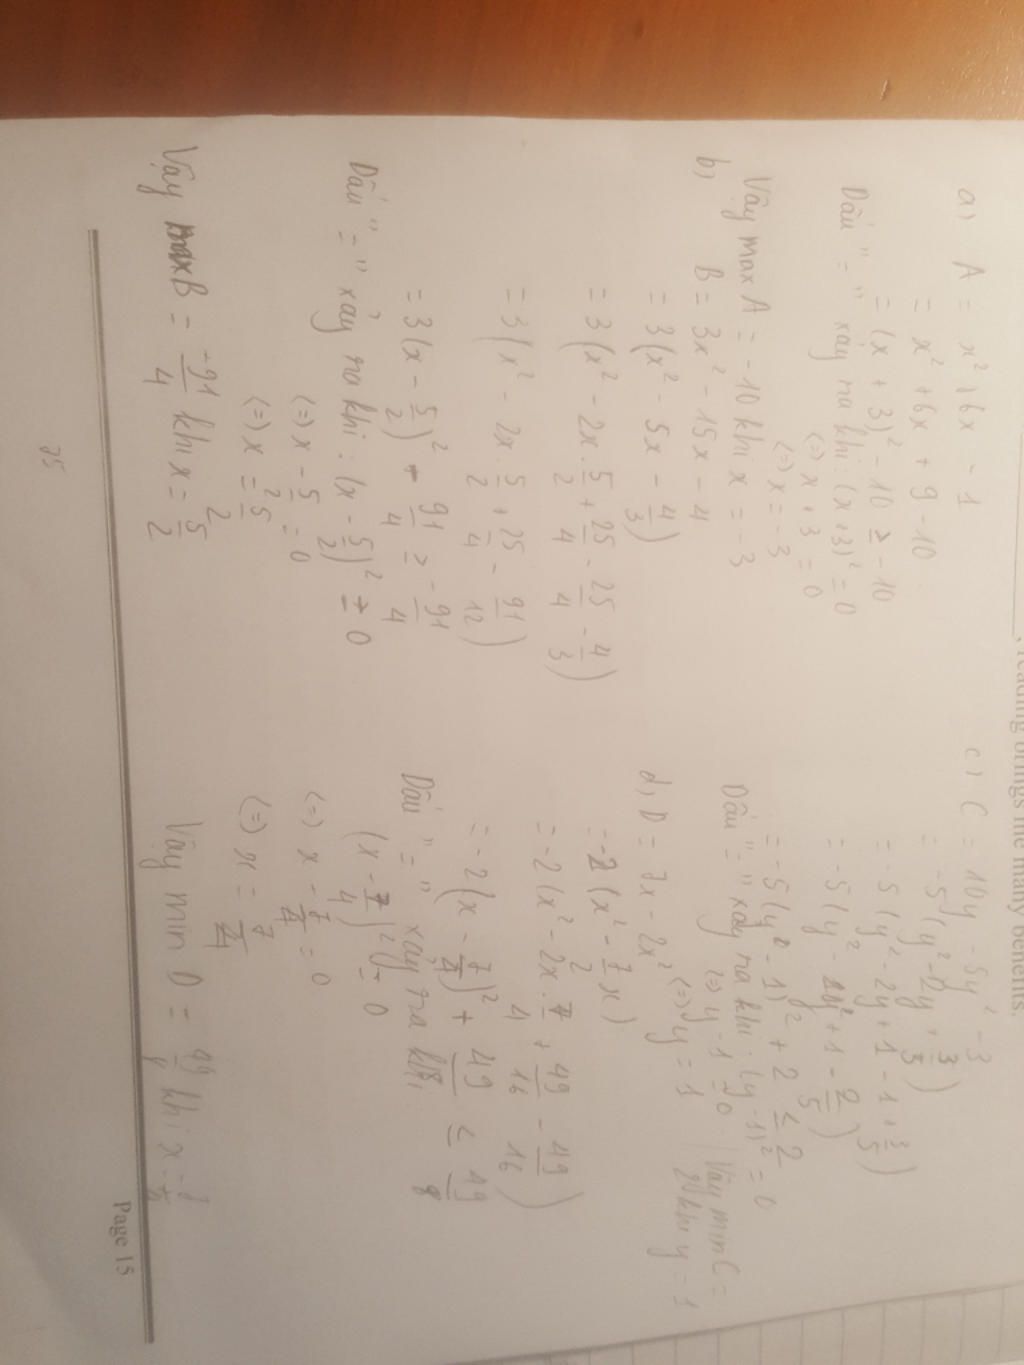 , reading brings me many benefits.
a) A = x² + 6x - 1
= x² + 6x + 9 - 10
= (x + 3)² - 10 ≥ - 10
Dấu "=" xảy ra khi: (x+3)² = 0
(=) x + 3 = 0
(=) x = -3
Vậy max A = -10 khi x = -3
b) B = 3x² - 15x - 4
= 3(x² - 5x - 4/3)
= 3(x² - 2x . 5/2 + 25/4 - 25/4 - 4/3)
= 3(x² - 2x . 5/2 + 25/4 - 91/12)
= 3(x - 5/2)² - 91/4 ≥ -91/4
Dấu "=" xảy ra khi: (x - 5/2)² = 0
(=) x - 5/2 = 0
(=) x = 5/2
Vậy max B = -91/4 khi x = 5/2
c) C = 10y - 5y² - 3
= -5(y² - 2y + 3/5)
= -5(y² - 2y + 1 - 1 + 3/5)
= -5(y² - 2y + 1 - 2/5)
= -5(y - 1)² + 2 ≤ 2
Dấu "=" xảy ra khi: (y-1)² = 0
(=) y - 1 = 0
(=) y = 1
Vậy min C =
2 khi y = 1
d) D = 7x - 2x²
= -2(x² - 7/2 x)
= -2(x² - 2x . 7/4 + 49/16 - 49/16)
= -2(x - 7/4)² + 49/8 ≤ 49/8
Dấu "=" xảy ra khi
(x - 7/4)² = 0
(=) x - 7/4 = 0
(=) x = 7/4
Vậy min D = 49/ khi x
Page 15